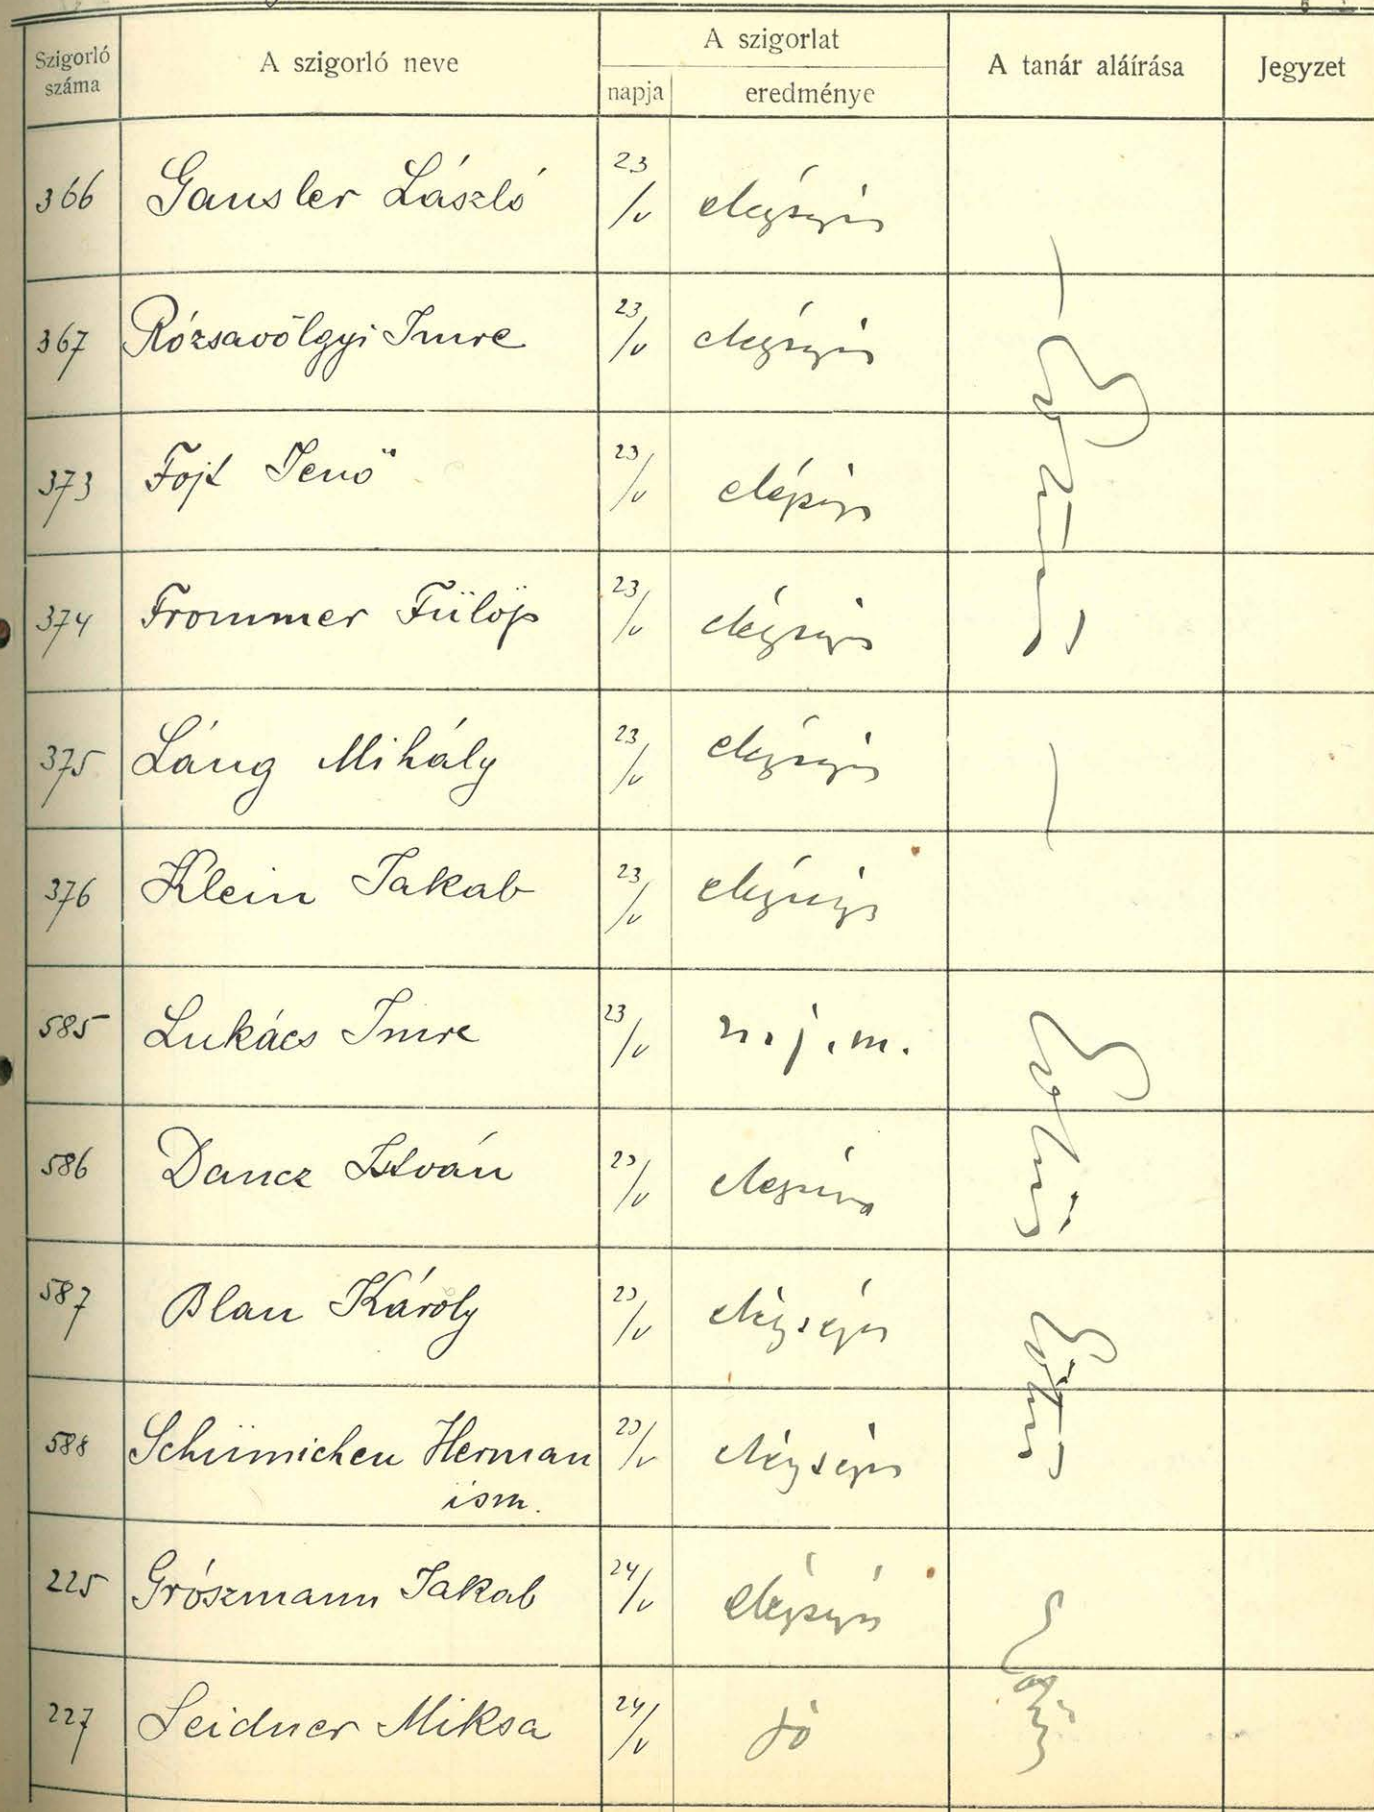 Szigorló száma
A szigorló neve
A szigorlat
napja
eredménye
A tanár aláírása
Jegyzet
366 Gausler László 23/V elégséges
367 Rózsavölgyi Imre 23/V elégséges
373 Fojt Jenő 23/V elégséges
374 Frommer Fülöp 23/V elégséges
375 Láng Mihály 23/V elégséges
376 Klein Jakab 23/V elégséges
585 Lukács Imre 23/V n.j.m.
586 Dancz István 23/V elégséges
587 Blau Károly 23/V elégséges
588 Schümichen Herman 23/V elégséges
ism.
225 Grószmann Jakab 24/V elégséges
227 Seidner Miksa 24/V jó